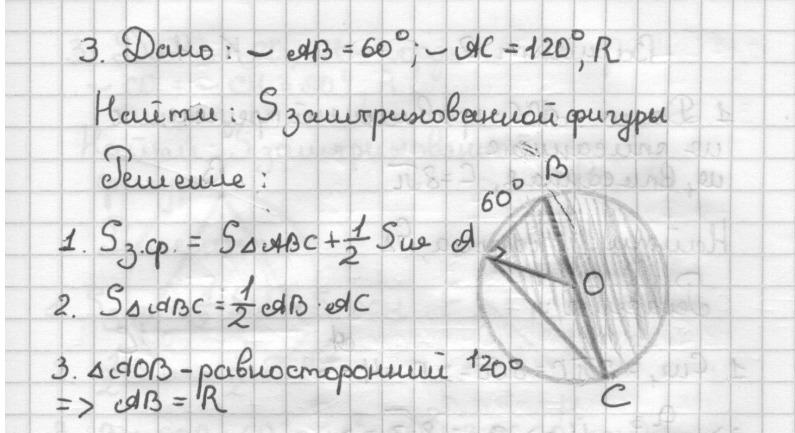 3. Дано: ‿ AB = 60°; ‿ AC = 120°, R
Найти: S заштрихованной фигуры
Решение:
1. Sз.ф. = S△ABC + 1/2 Sш
2. S△ABC = 1/2 AB · AC
3. △AOB – равносторонний
=> AB = R
B
60°
A
O
120°
C